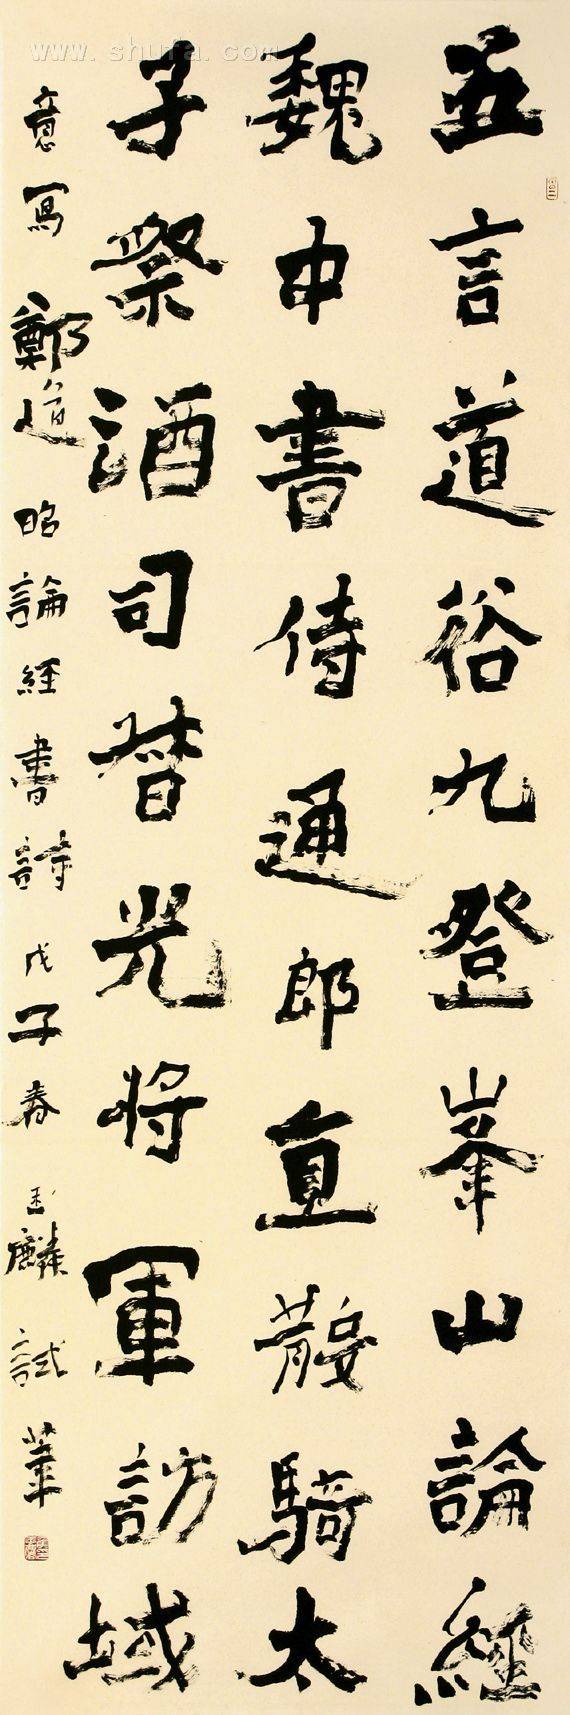 www.shufa.com
五言道俗九登峯山論經
魏中書侍通郎直散騎太
子祭酒司督光將軍訪域
意寫鄭道昭論經書詩戊子春玉麟試筆